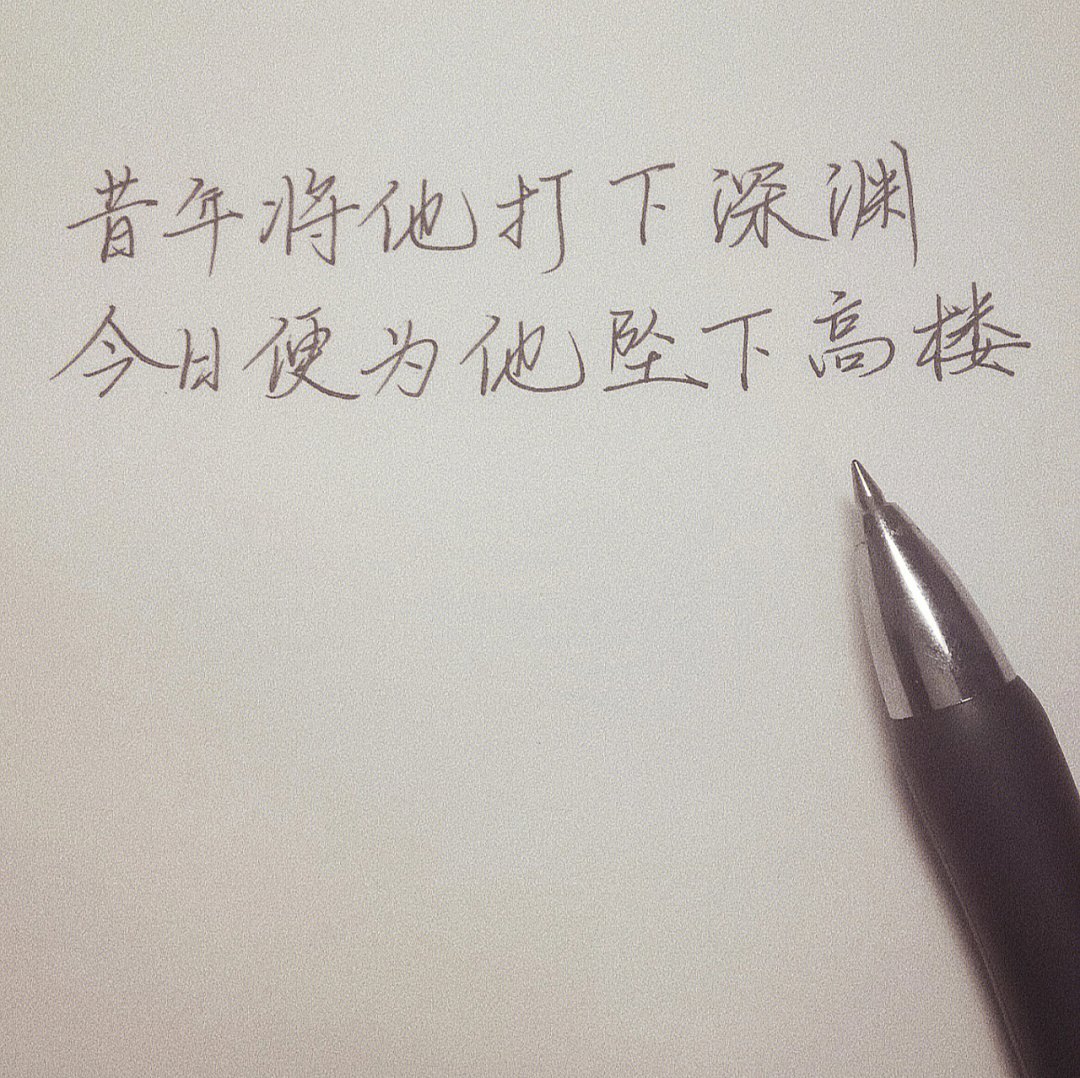 昔年将他打下深渊
今日便为他坠下高楼